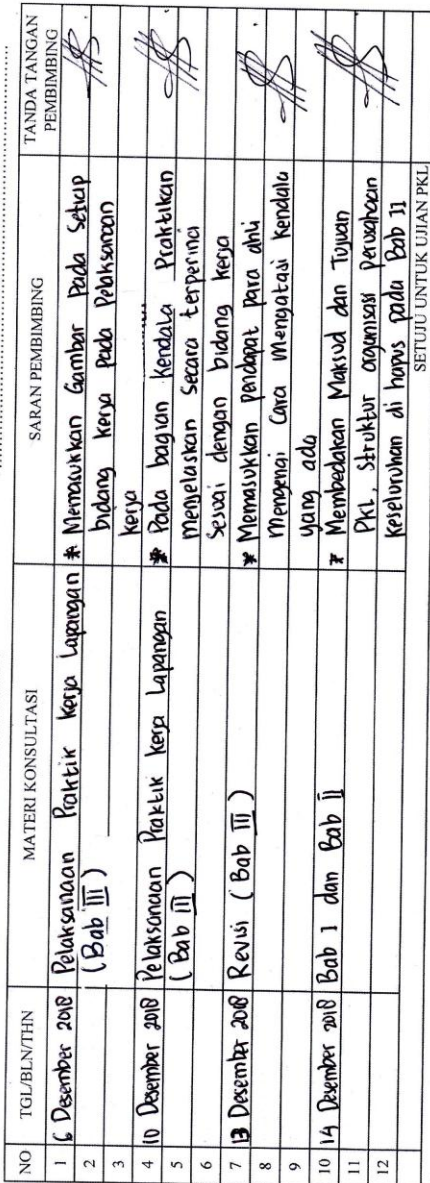 NO TGL/BLN/THN MATERI KONSULTASI SARAN PEMBIMBING TANDA TANGAN
PEMBIMBING
1 6 Desember 2018 Pelaksanaan Praktik Kerja Lapangan * Memasukkan Gambar Pada Setiap
2 (Bab III) bidang kerja pada Pelaksanaan
3 Kerja
4 10 Desember 2018 Pelaksanaan Praktik Kerja Lapangan * Pada bagian Kendala Praktikan
5 (Bab III) menjelaskan Secara terperinci
6 Sesuai dengan bidang kerja
7 13 Desember 2018 Revisi (Bab III) * Memasukkan pendapat para ahli
8 mengenai Cara Mengatasi kendala
9 yang ada
10 14 Desember 2018 Bab I dan Bab II * Membedakan Maksud dan Tujuan
11 PKL, Struktur organisasi perusahaan
12 Keseluruhan di hapus pada Bab II
SETUJU UNTUK UJIAN PKL